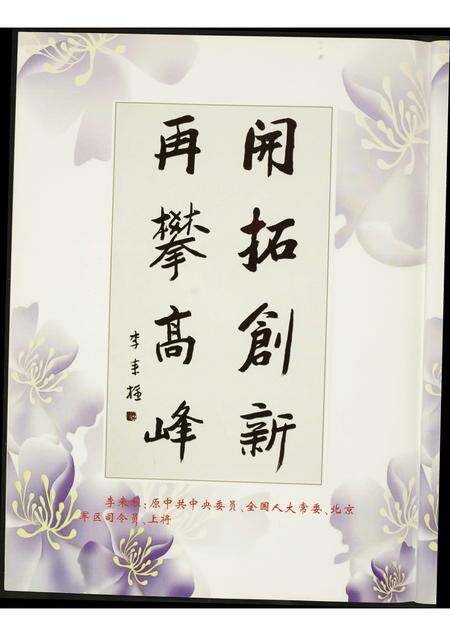 開拓創新
再攀高峰
李来柱
李来柱：原中共中央委员、全国人大常委、北京
军区司令员、上将